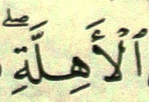 ٱلۡأَهِلَّةِۖ